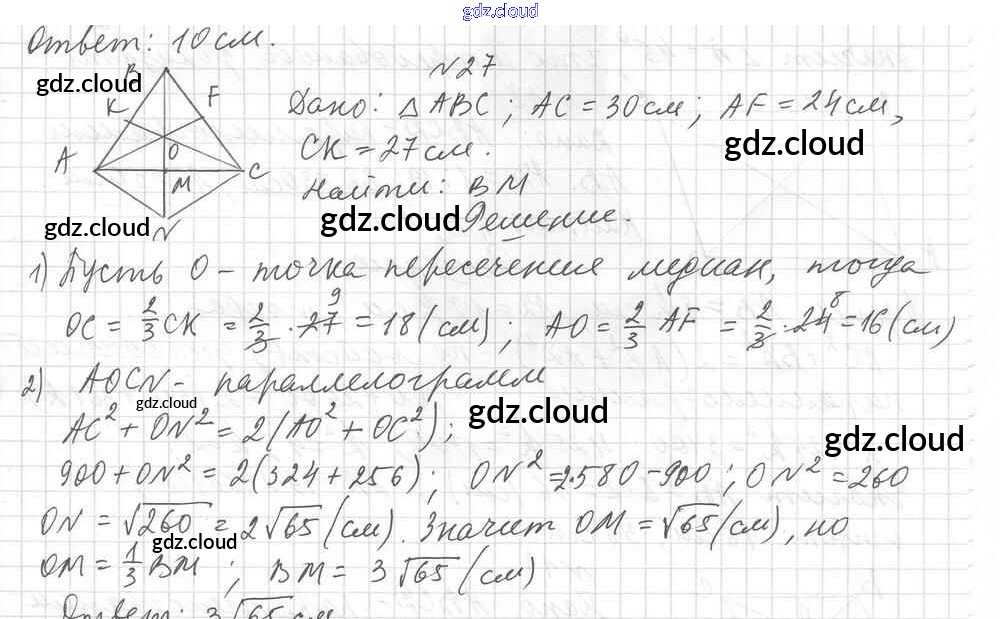 gdz.cloud
Ответ: 10 см.
gdz.cloud
B
K
F
A
O
C
M
N
gdz.cloud
№27
Дано: △ABC; AC = 30 см; AF = 24 см,
CK = 27 см.
gdz.cloud
Найти: BM
gdz.cloud
Решение.
1) Пусть O – точка пересечения медиан, тогда
OC = 2/3 CK = 2/3 · 27 9 = 18 (см); AO = 2/3 AF = 2/3 · 24 8 = 16 (см)
2) AOCN – параллелограмм
gdz.cloud
gdz.cloud
AC² + ON² = 2(AO² + OC²);
gdz.cloud
900 + ON² = 2(324 + 256); ON² = 2·580 – 900; ON² = 260
ON = √260 = 2√65 (см). Значит OM = √65 (см), но
gdz.cloud
OM = 1/3 BM; BM = 3√65 (см)
Ответ: 3√65 см